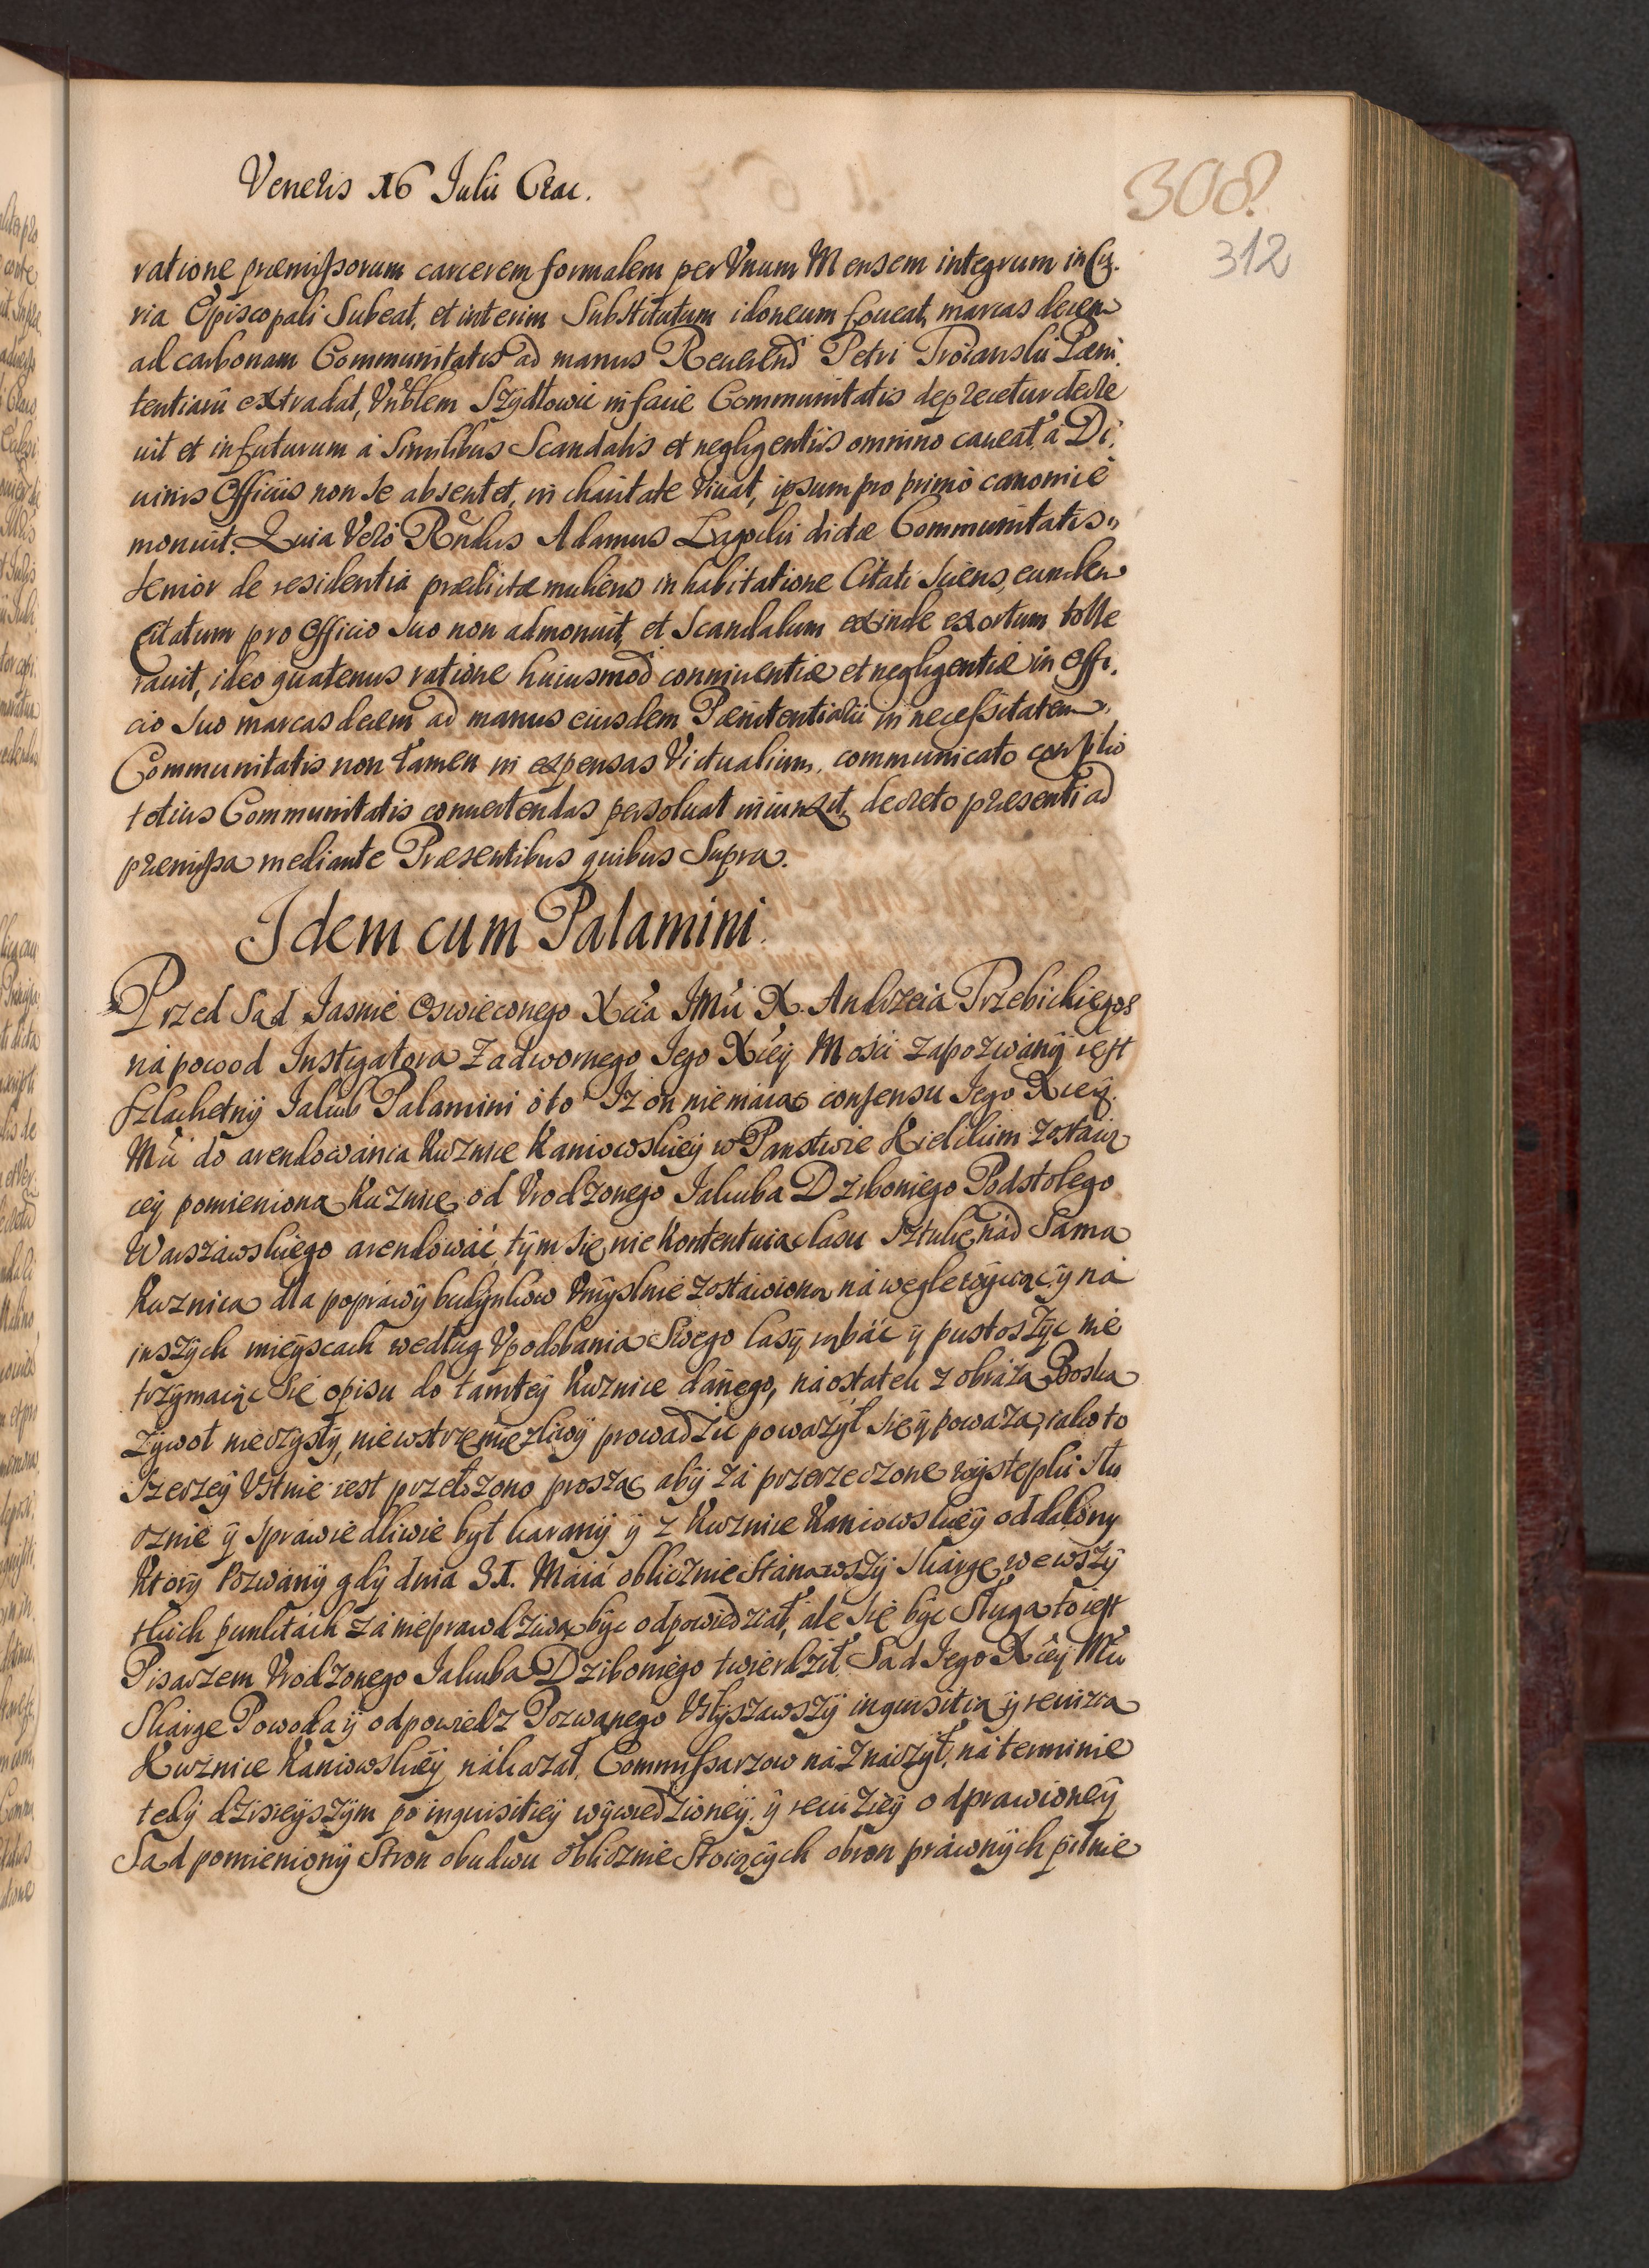 Veneris 16 Julii Crac.
308
312
ratione præmissorum carcerem formalem per Vnum Mensem integrum in Cu,
ria Episcopali Subeat, et interim Substitutum idoneum foueat, marcas decem
ad carbonam Communitatis ad manus Reuerend Petri Troianski Pæni
tentiarii extradat, Vnblem Szydłowic in facie Communitatis deprecetur decre
uit et in futurum à Similibus Scandalis et negligentiis omnino caueat, à Di,
uinis Officiis non se absentet, in charitate viuat, ipsum pro primò canonicè
monuit. Quia Verò Rndus Adamus Łagocki dictæ Communitatis
Senior de residentia prædictæ mulieris in habitatione Citati Sciens, eundem
Citatum pro Officio suo non admonuit, et Scandalum exinde exortum tolle
rauit, ideo quatenus ratione huiusmod conniuentiæ et negligentiæ in Offi,
cio Suo marcas decem ad manus eiusdem Pænitentiarii in necessitatem
Communitatis non tamen in expensas Victualium, communicato consilio
totius Communitatis conuertendas persoluat iniunxit, decreto præsenti ad
præmissa mediante Præsentibus quibus Supra.
Idem cum Palamini.
Przed Sąd Jasnie Oswieconego Xcia JMci X. Andrzeia Trzebickiego
ná powod Instigatora Zadwornego Jego Xcey Mosci zapozwány iest
Szlachetny Jakub Palamini o to Iz on nie maiąc consensu Jego Xcey
Mci do arendowánia Kuznice Kaniowskiey w Panstwie Kieleckim zostaią
cey pomienioną Kuznicę od Vrodzonego Jakuba Dziboniego Podstolego
Warszáwskiego arendowáć, tym się nie kontentuiąc lasu Sztukę nád Samą
Kuznicą dla popráwy budynkow Vmyslnie zostáwioną ná węgle wyciąć y ná
inszych mieyscach według Vpodobania Swego lasy rąbáć y pustoszyć nie
trzymaiąc się opisu do tamtey Kuznice dánego, ná ostatek z obrázą Boską
Zywot nieczysty, niewstrzemięzliwy prowadzic powazył się y powaza, iako to
Szerzey Vstnie iest przełozono prosząc aby zá przerzeczone występki Słu
sznie y Spráwiedliwie był karany y z Kuznice Kaniowskiey oddalony
Ktory Pozwány gdy dnia 31. Maia oblicznie Stánąwszy Skárgę we wszy
tkich punktách zá nieprawdziwą być odpowiedział, ale się być Sługą to iest
Pisarzem Vrodzonego Jakuba Dziboniego twierdził, Sąd Jego Xcey Mci
Skárgę Powoda y odpowiedz Pozwanego Vsłyszawszy inquisitią y reuizią
Kuznice Kaniowskiey nákazał, Commissarzow náznáczył, ná terminie
tedy dzisieyszym po inquisitiey wywiedzioney y reuiziey odprawioney
Sąd pomieniony Stron obudwu oblicznie Stoiących obron práwnych pilnie